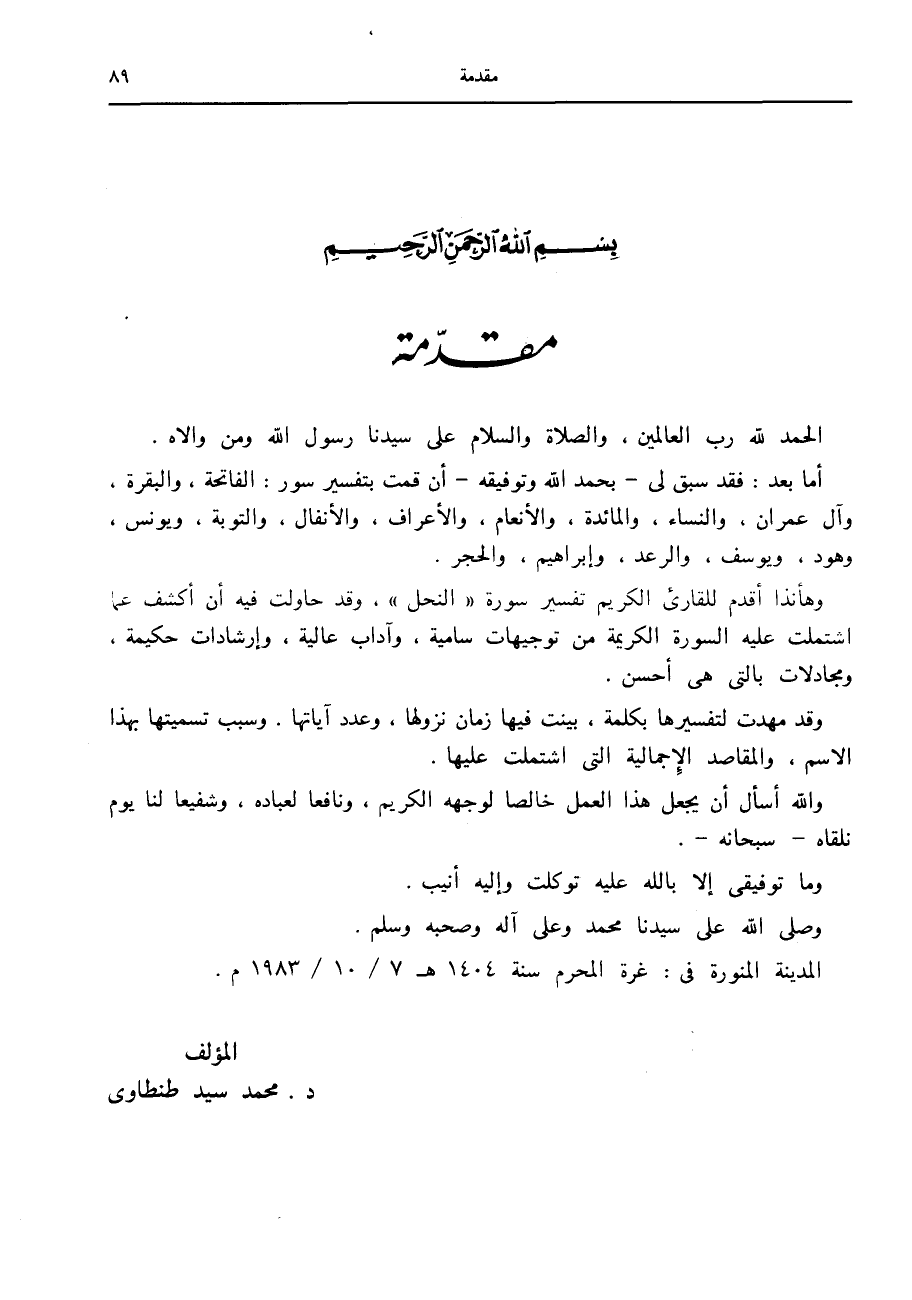 مقدمة ٨٩
بِسْمِ ٱللَّهِ ٱلرَّحْمَنِ ٱلرَّحِيمِ
مقدّمة
الحمد لله رب العالمين ، والصلاة والسلام على سيدنا رسول الله ومن والاه .
أما بعد : فقد سبق لى – بحمد الله وتوفيقه – أن قمت بتفسير سور : الفاتحة ، والبقرة ،
وآل عمران ، والنساء ، والمائدة ، والأنعام ، والأعراف ، والأنفال ، والتوبة ، ويونس ،
وهود ، ويوسف ، والرعد ، وإبراهيم ، والحجر .
وهأنذا أقدم للقارئ الكريم تفسير سورة « النحل » ، وقد حاولت فيه أن أكشف عما
اشتملت عليه السورة الكريمة من توجيهات سامية ، وآداب عالية ، وإرشادات حكيمة ،
ومجادلات بالتى هى أحسن .
وقد مهدت لتفسيرها بكلمة ، بينت فيها زمان نزولها ، وعدد آياتها . وسبب تسميتها بهذا
الاسم ، والمقاصد الإِجمالية التى اشتملت عليها .
والله أسأل أن يجعل هذا العمل خالصا لوجهه الكريم ، ونافعا لعباده ، وشفيعا لنا يوم
نلقاه – سبحانه – .
وما توفيقى إلا بالله عليه توكلت وإليه أنيب .
وصلى الله على سيدنا محمد وعلى آله وصحبه وسلم .
المدينة المنورة فى : غرة المحرم سنة ١٤٠٤ هـ ٧ / ١٠ / ١٩٨٣ م .
المؤلف
د . محمد سيد طنطاوى